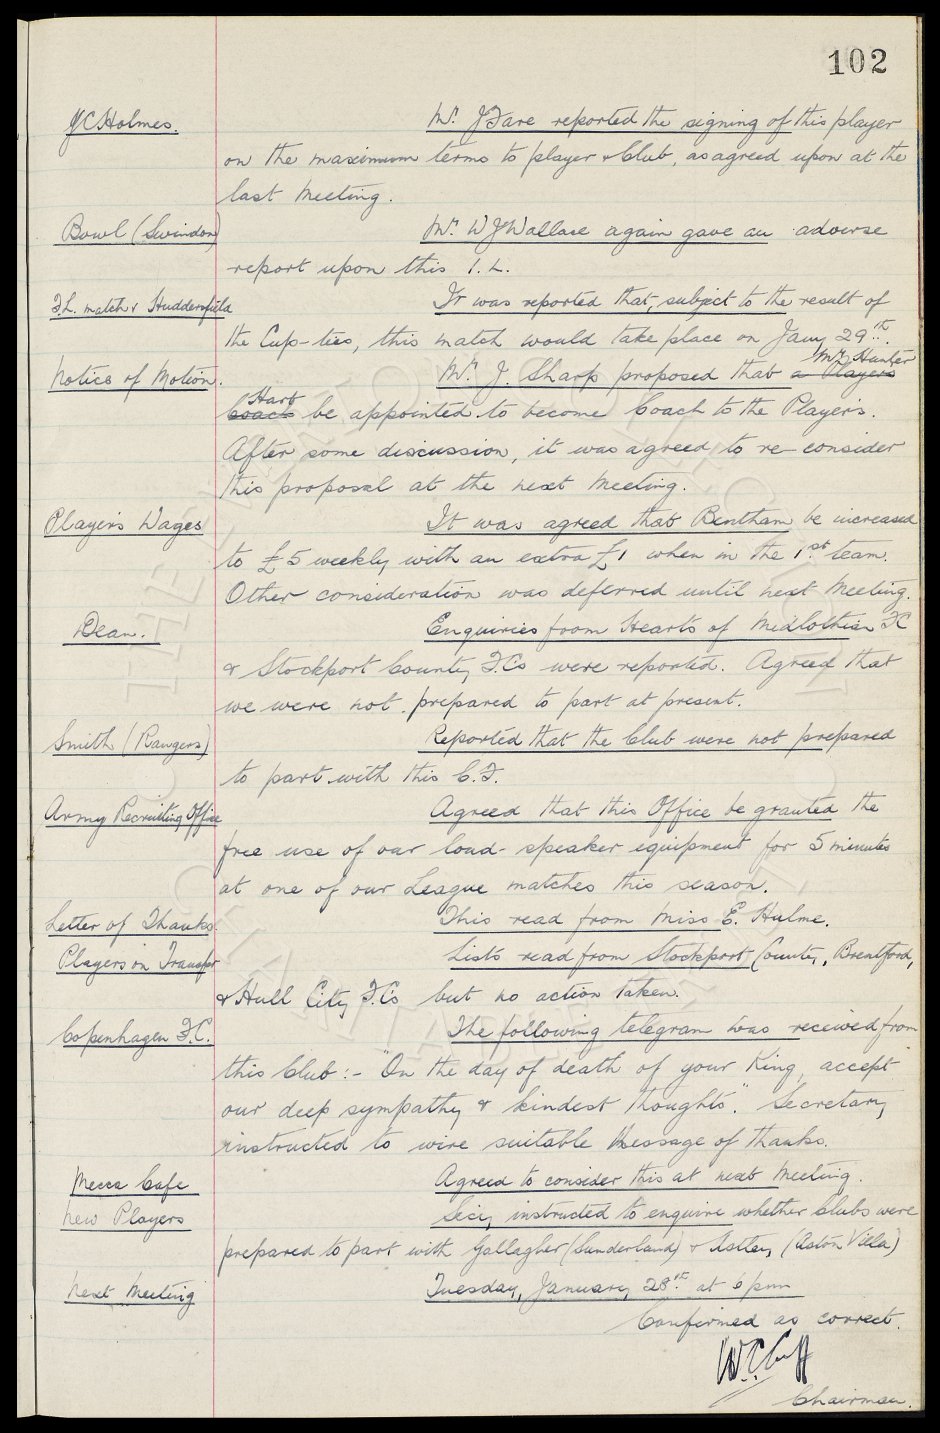 102
J C Holmes. Mr. J Fare reported the signing of this player
on the maximum terms to player & Club, as agreed upon at the
last Meeting.
Bowl (Swindon) Mr. W J Wallace again gave an adverse
report upon this I.L.
F.L. match v Huddersfield It was reported that, subject to the result of
the Cup-ties, this match would take place on Jany 29th.
Notice of Motion. Mr. J. Sharp proposed that a Players
Mr Hunter
Hart
Coach be appointed to become Coach to the Players.
After some discussion, it was agreed to re-consider
this proposal at the next Meeting.
Player's Wages It was agreed that Bentham be increased
to £5 weekly with an extra £1 when in the 1st team.
Other consideration was deferred until next Meeting.
Dean. Enquiries from Hearts of Midlothian FC
& Stockport County F.C's were reported. Agreed that
we were not prepared to part at present.
Smith (Rangers) Reported that the Club were not prepared
to part with this C.F.
Army Recruiting Office Agreed that this Office be granted the
free use of our loud-speaker equipment for 5 minutes
at one of our League matches this season.
Letter of Thanks. This read from Miss E. Hulme.
Players on Transfer Lists read from Stockport County, Brentford,
& Hull City F.C's but no action taken.
Copenhagen F.C. The following telegram was received from
this Club:- "On the day of death of your King, accept
our deep sympathy & kindest thoughts". Secretary
instructed to wire suitable Message of thanks.
Mecca Cafe Agreed to consider this at next Meeting.
New Players Secy instructed to enquire whether Clubs were
prepared to part with Gallagher (Sunderland) & Astley (Aston Villa)
Next Meeting Tuesday, January 28th at 6 pm
Confirmed as correct.
W.C. Cuff
Chairman.